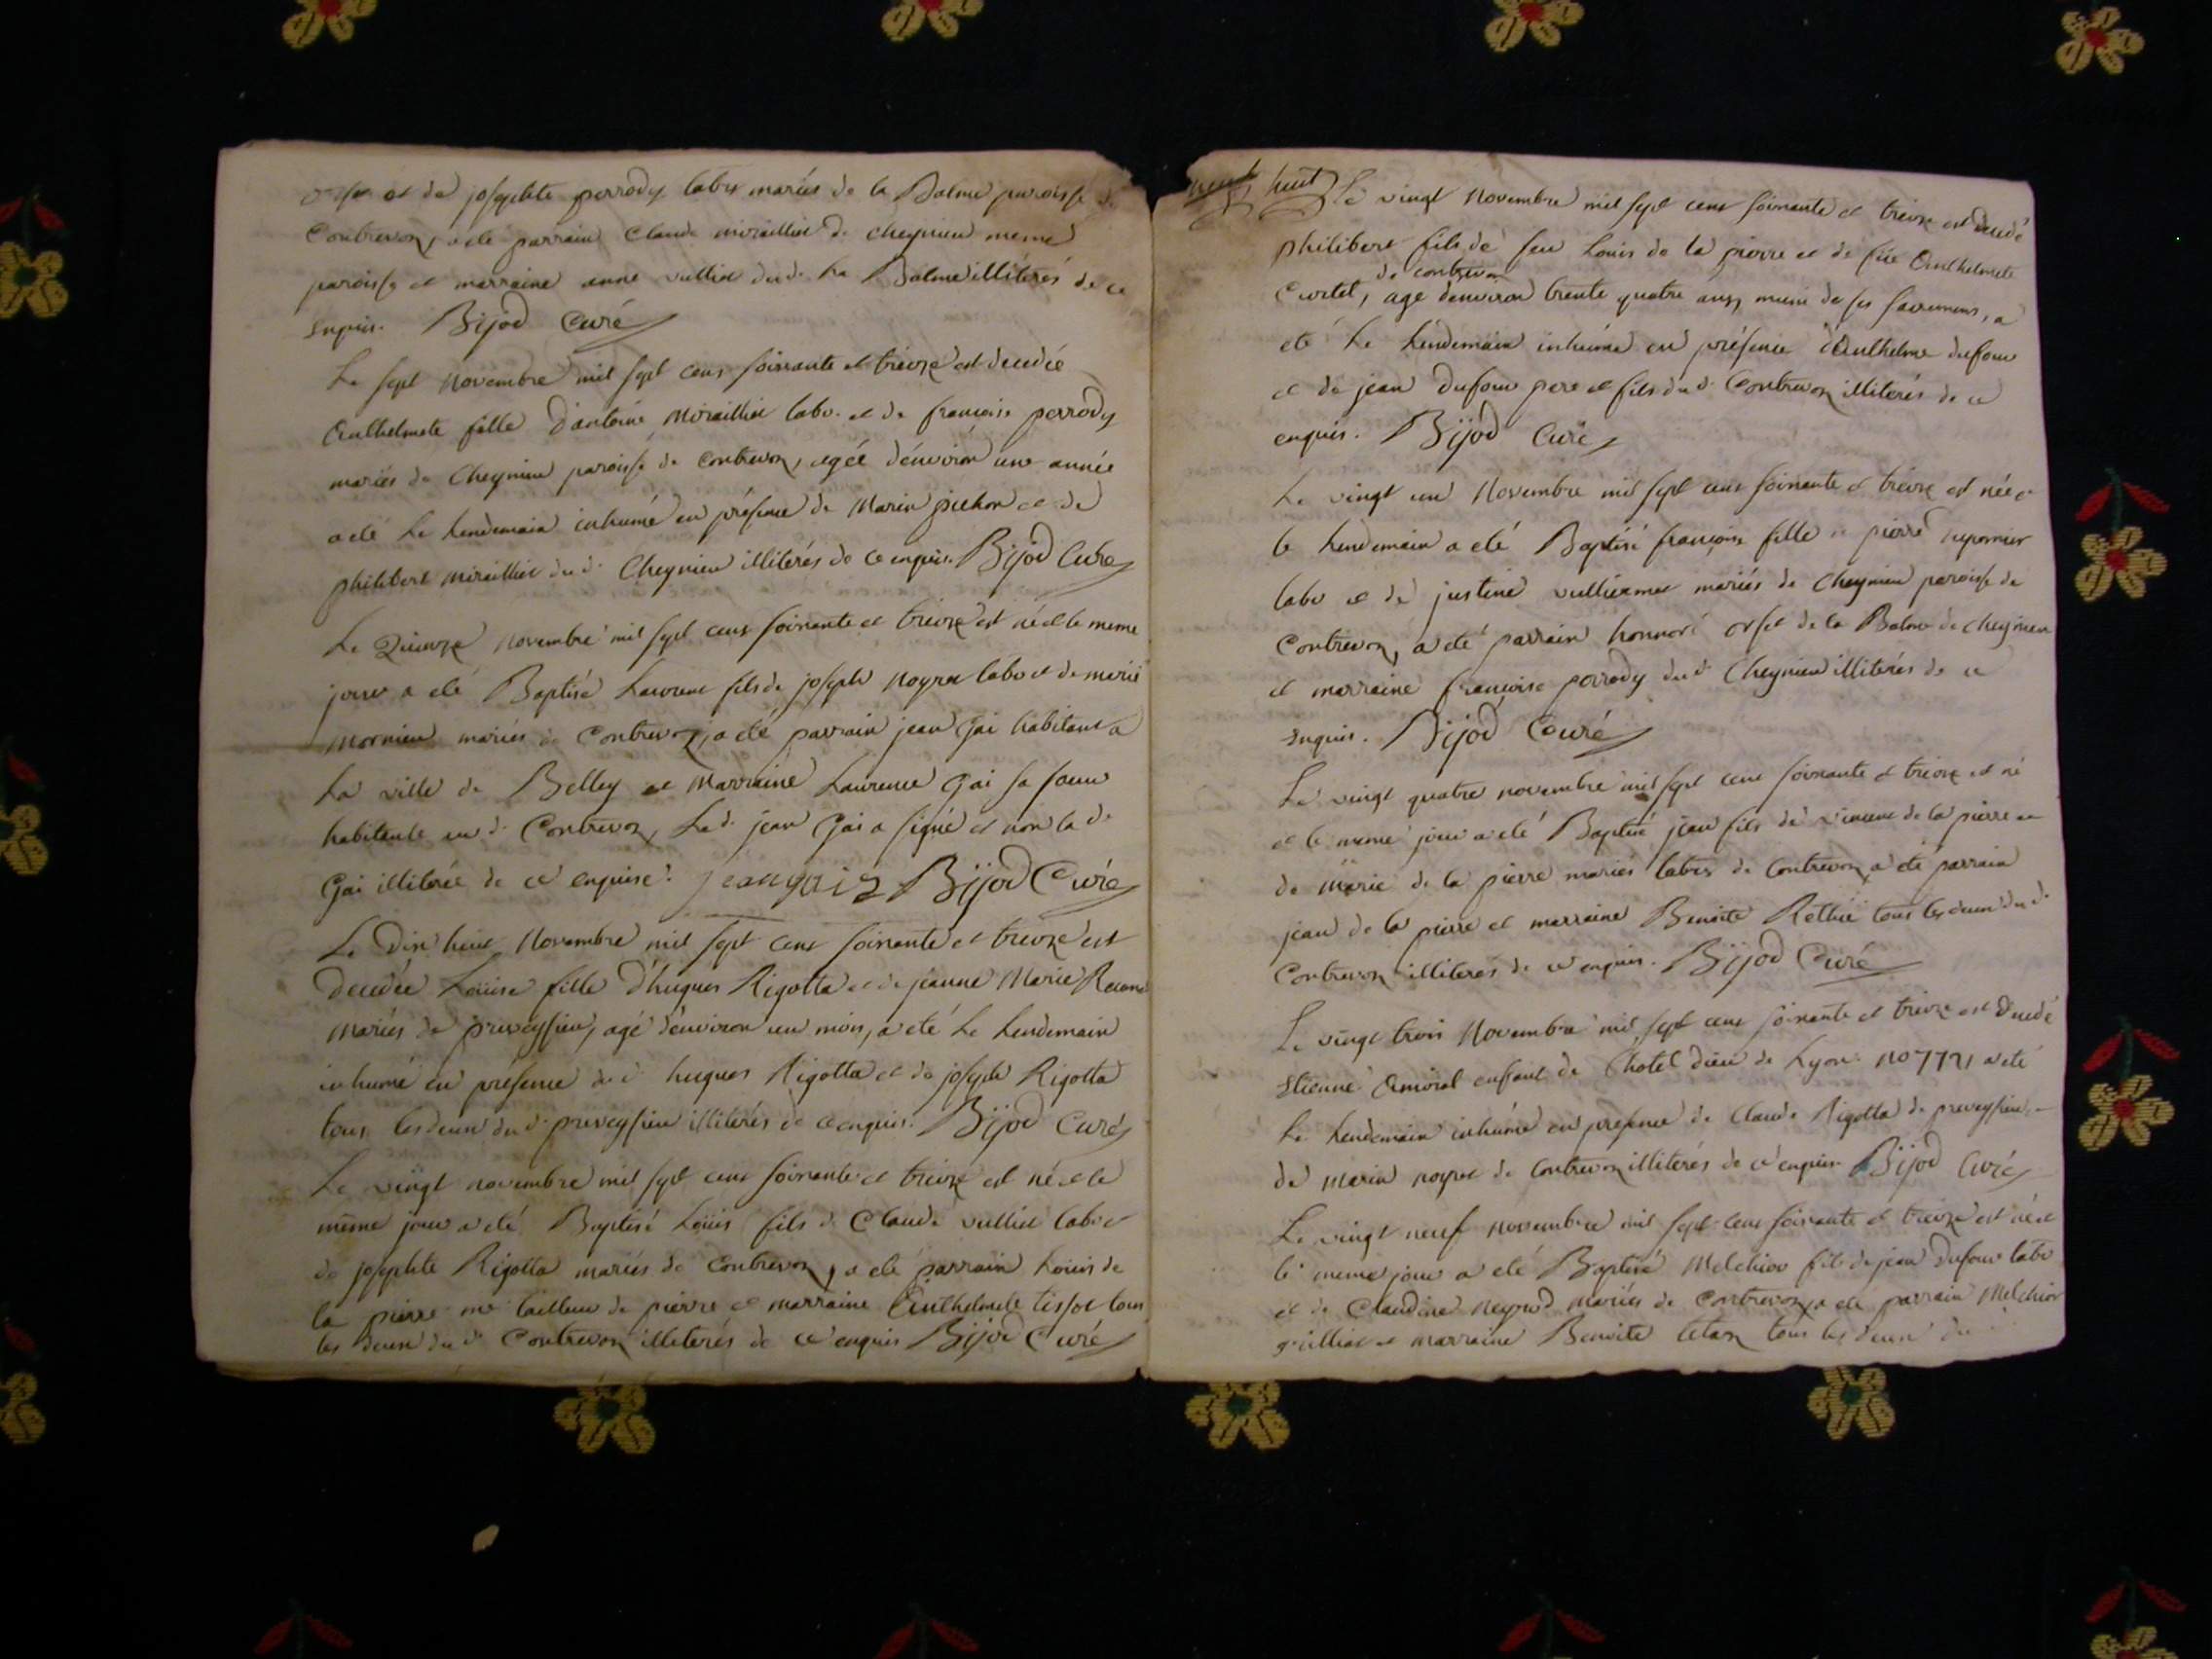 et de josephte perrody labrs mariés de la Balme paroisse de
Contrevoz, a eté parrain Claude miraillet de cheynieu meme
paroisse et marraine anne vulliet dud. La Balme illiterés de ce
enquis. Bijod Curé
Le sept novembre mil sept cens soixante et treize est decedée
Anthelmete fille d'antoine Miraillet labr. et de françoise perrody
mariés de Cheynieu paroisse de Contrevoz, agée d'environ une année
a eté Le Lendemain inhumé en présence de Marin pichon et de
philibert Miraillet dud. Cheynieu illiterés de ce enquis. Bijod Curé
Le Quinze novembre mil sept cens soixante et treize est né et le meme
jour a eté Baptisé Laurent fils de joseph noyret labr et de marie
mornieu mariés de Contrevoz, a eté parrain jean Gai habitant a
La ville de Belley et Marraine Laurence Gai sa soeur
habitante aud. Contrevoz, Led. jean Gai a signé et non lad.
Gai illiterée de ce enquise. jean gai Bijod Curé
Le Dix huit Novembre mil sept cens soixante et treize est
decedée Loüise fille d'hugues Rigotta et de jeanne Marie
mariés de preveyssieu, agé d'environ un mois, a eté Le Lendemain
inhumé en présence dud. hugues Rigotta et de joseph Rigotta
tous les deux dud. preveyssieu illiterés de ce enquis. Bijod Curé
Le vingt novembre mil sept cens soixante et treize est né et le
même jour a eté Baptisé Loüis fils de Claude vulliet labr et
de josephte Rigotta mariés de Contrevoz, a eté parrain Loüis de
la pierre me tailleur de pierre et marraine Anthelmete tissot tous
les deux dud. Contrevoz illiterés de ce enquis Bijod Curé
huit Le vingt Novembre mil sept cens soixante et treize est decedé
philibert fils de feu Louis de la pierre et de füe Anthelmete
de contrevoz
Curtet, agé d'environ trente quatre ans, muni de ses sacremens, a
eté Le Lendemain inhumé en présence d'Anthelme dufour
et de jean Dufour pere et fils dud. Contrevoz illiterés de ce
enquis. Bijod Curé
Le vingt un Novembre mil sept cens soixante et treize est née et
le Lendemain a eté Baptisé françoise fille de pierre
labr et de justine vulliermet mariés de Cheynieu paroisse de
Contrevoz, a eté parrain honnoré orset de la Balme de cheynieu
et marraine françoise perrody dud. Cheynieu illiterés de ce
enquis. Bijod Curé
Le vingt quatre novembre mil sept cens soixante et treize est né
et le meme jour a eté Baptisé jean fils de vincent de la pierre et
de Marie de la pierre mariés labrs de Contrevoz a eté parrain
jean de la pierre et marraine Benoite tous les deux dud.
Contrevoz illiterés de ce enquis. Bijod Curé
Le vingt trois Novembre mil sept cens soixante et treize est Decedé
Etienne Amiral enfant de l'hotel dieu de Lyon no a eté
Le Lendemain inhumé en présence de Claude Rigotta de preveyssieu et
de Marin noyret de Contrevoz illiterés de ce enquis Bijod Curé
Le vingt neuf novembre mil sept cens soixante et treize est né et
le meme jour a eté Baptisé Melchior fils de jean dufour labr
et de Claudine neyrod mariés de Contrevoz, a eté parrain Melchior
et marraine Benoite tous les deux